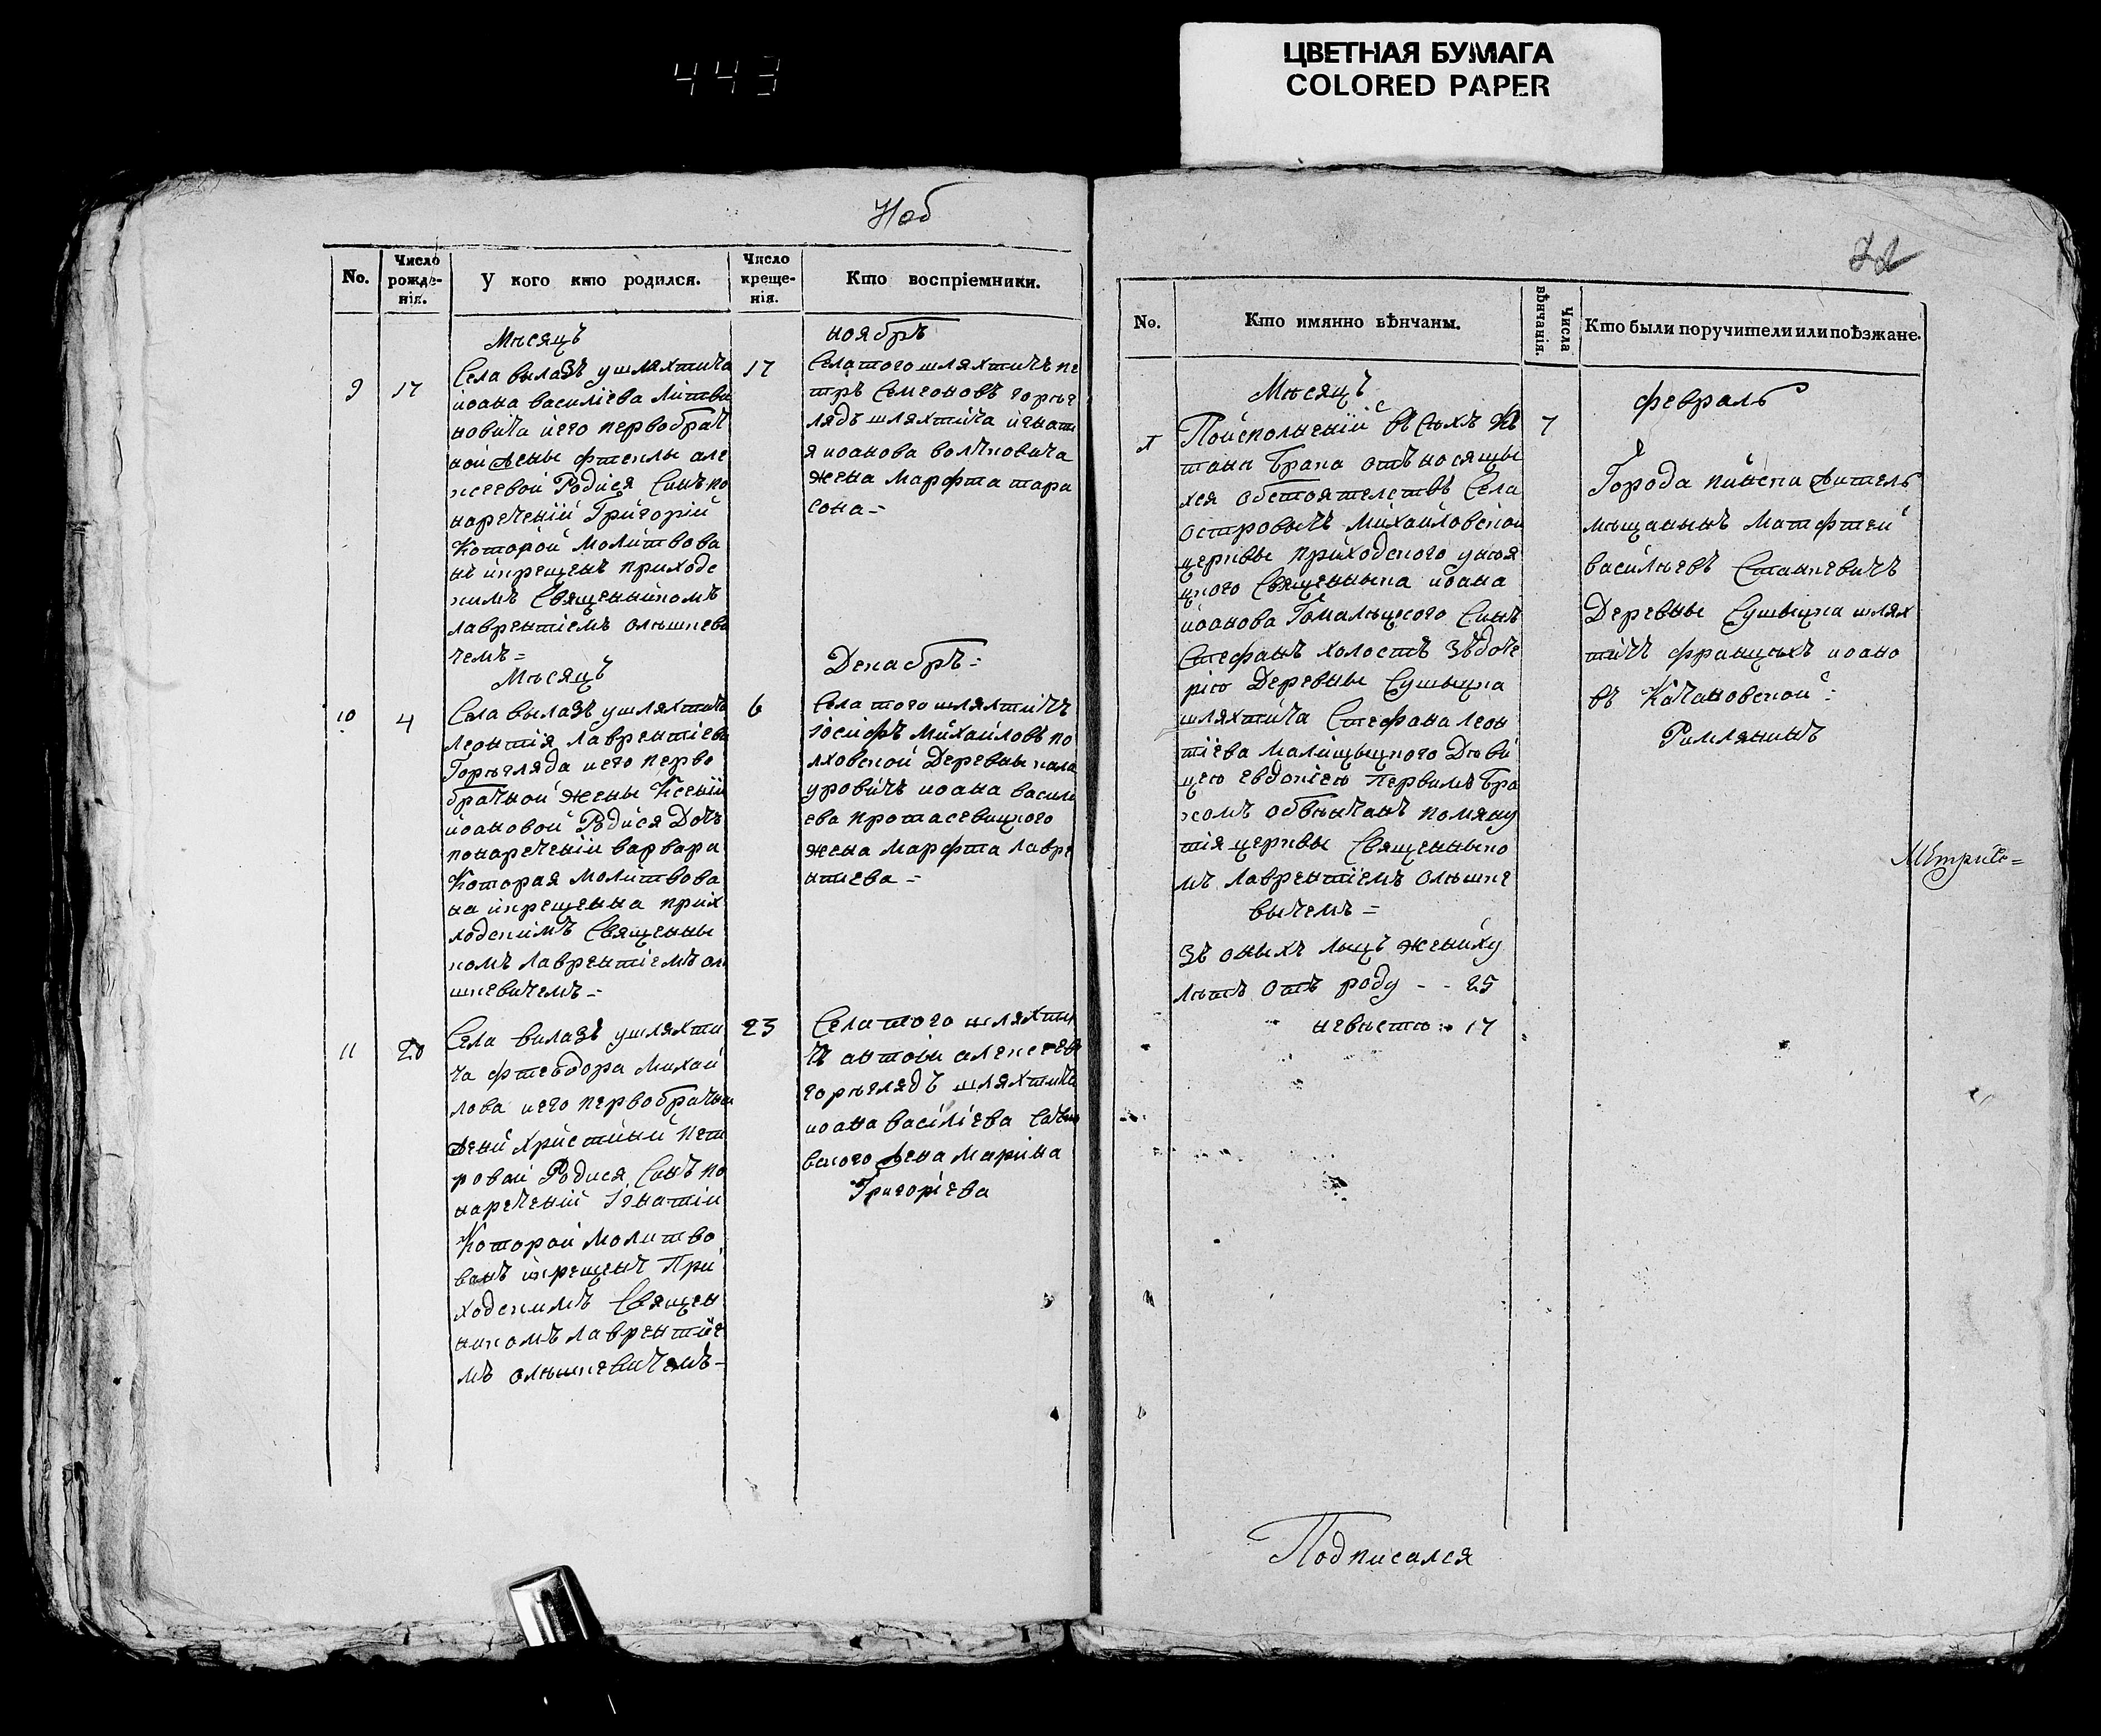 443
ЦВЕТНАЯ БУМАГА
COLORED PAPER
No.
Число рожде-нія.
У кого кто родился.
Число креще-нія.
Кто воспріемники.
Мѣсяцъ
ноябръ
9
17
Села вылазъ ушляхтича
иоана василіева литви
новича иего первобрач
ной жены фтеклы але
ксеевой Родися Синъ по
нареченіи Григорій
Которой молитвова
нъ икрещенъ приходс
кимъ Священикомъ
лаврентіемъ олѣшкеви
чемъ =
17
Села того шляхтичъ пе
тръ Семеоновъ горѣг
лядъ шляхтича игнати
я иоанова волчковича
жена Марфта тара
сова =
Мѣсяцъ
Декабръ =
10
4
Села вылазъ ушляхтича
леонтія лаврентіева
Горѣгляда иего перво
брачной жены Ксеніи
иоановой Родися Дочъ
понареченіи варвара
Которая молитвова
на икрещенна прих
ходскимъ Священны
комъ лаврентіемъ ол
шкевичемъ =
6
Села того шляхтичъ
іосифъ Михаиловъ по
лховской Деревны кала
уровичъ иоана васили
ева протасевицкого
жена Марфта лавре
нтиева =
11
20
Села вилазъ ушляхти
ча фтеодора Михаи
лова иего первобрачны
жени Християни Пет
ровои Родися Синъ по
нареченіи Игнатіи
Которои молитво
ванъ икрещенъ При
ходскимъ Священ
никомъ лаврентие
мъ олѣшкевичемъ =
23
Села того шляхти
чъ антоіи алексеевъ
горѣглядъ шляхтича
иоана Василіева
вского жена Марина
Григоріева
No.
Кто имянно вѣнчаны.
Числа вѣнчанія.
Кто были поручители или поѣзжане.
Мѣсяцъ
февраль
Поисполненіи всѣхъ
танн брака отъносящы
хся обстоятелствъ Села
островычъ Михаиловской
церквы приходского уния
цкого Священныка иоана
иоанова Гомалѣцкого Синъ
Стефанъ холостъ Зъдоче
рію Деревны Сушыцка
шляхтича Стефана леон
тіева малищыцкого Дѣви
цею евдокіею первимъ бра
комъ обвѣнчанъ помяну
тія церквы Священныко
мъ лаврентіемъ олѣшке
вычемъ =
Зъ оныхъ лыцъ жениху
лѣтъ отъ роду - - 25
невѣсто - 17
7
Города пинска житель
мѣщанынъ Матфтей
васильевъ Станкевичъ
Деревны Сушыцка шлях
тичъ францѣхъ иоано
въ Качановской =
Римлянинъ
Подписался